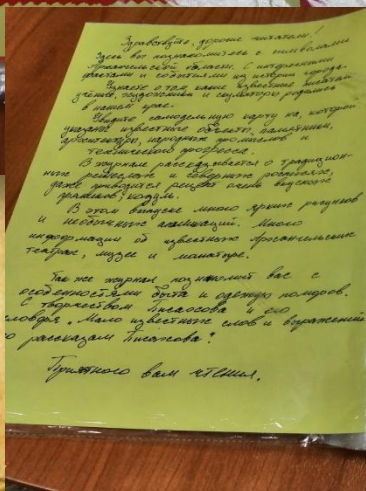 Здравствуйте, дорогие читатели!
Здесь вы познакомитесь с символами
Архангельской области. С интересными
фактами и событиями из истории города.
Узнаете о том, какие известные писатели
учёные, художники и скульпторы родились
в нашем крае.
Увидите самодельную карту на, которой
указаны известные объекты, памятники,
архитектуры, народных промыслов и
технического прогресса.
В журнале рассказывается о традицион-
ных ремеслах и северных росписях,
даже приводится рецепт очень вкусного
пряника; козули.
В этом выпуске много ярких рисунков
и необычных аппликаций. Много
информации об известных Архангельских
театрах, музее и
Так же журнал познакомит вас с
особенностями быта и одежду поморов.
С творчеством Писахова и его
словарь „Мало известных слов и выражений
по рассказам Писахова".
Приятного вам чтения.